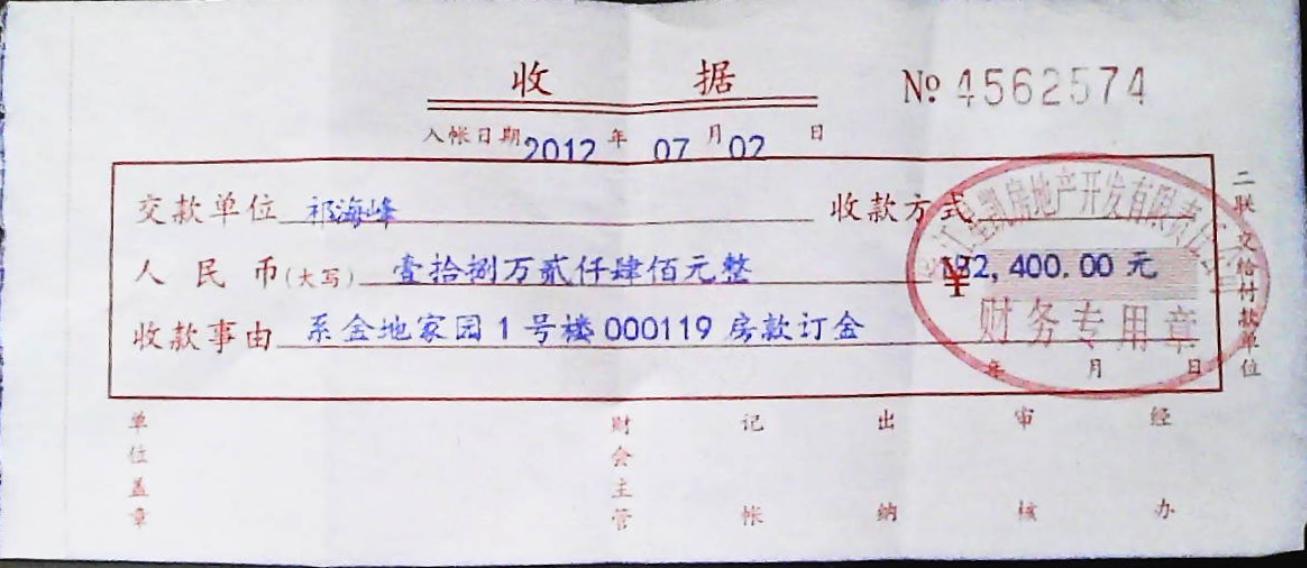 收 据
№ 4562574
入帐日期 2012 年 07 月 02 日
交款单位 祁海峰 收款方式
人民币(大写) 壹拾捌万贰仟肆佰元整 ¥ 82,400.00 元
收款事由 系金地家园1号楼000119房款订金
房地产开发有限责任
财务专用章
年 月 日
二联交给付款单位
单位盖章 财会主管 记帐 出纳 审核 经办